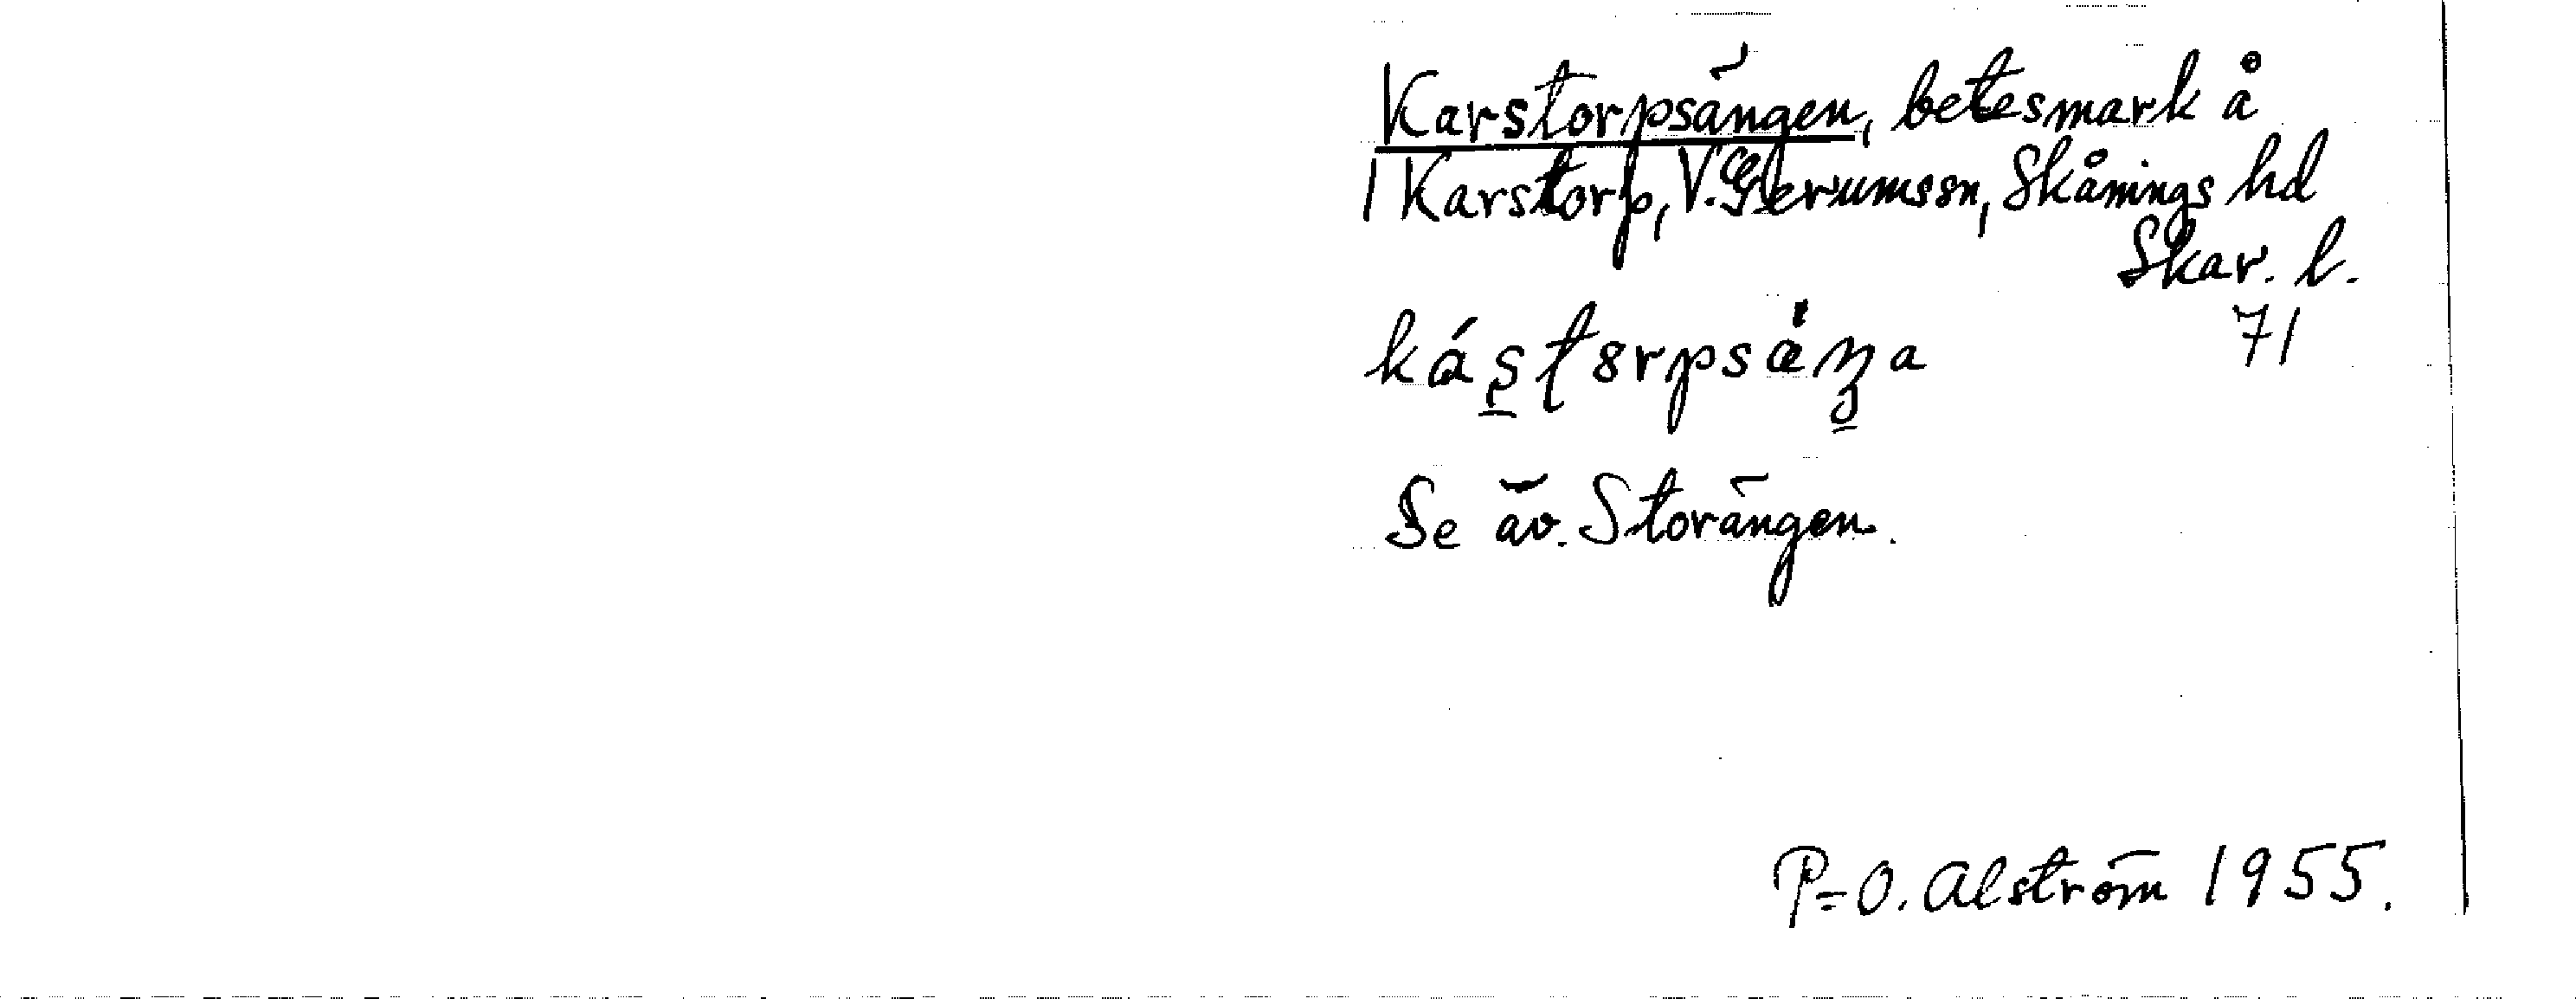 Karstorpsängen, betesmark å
1 Karstorp, V. Gerumssn, Skånings hd
Skar. l.
71
Se äv. Storängen.
P-O. Alström 1955.